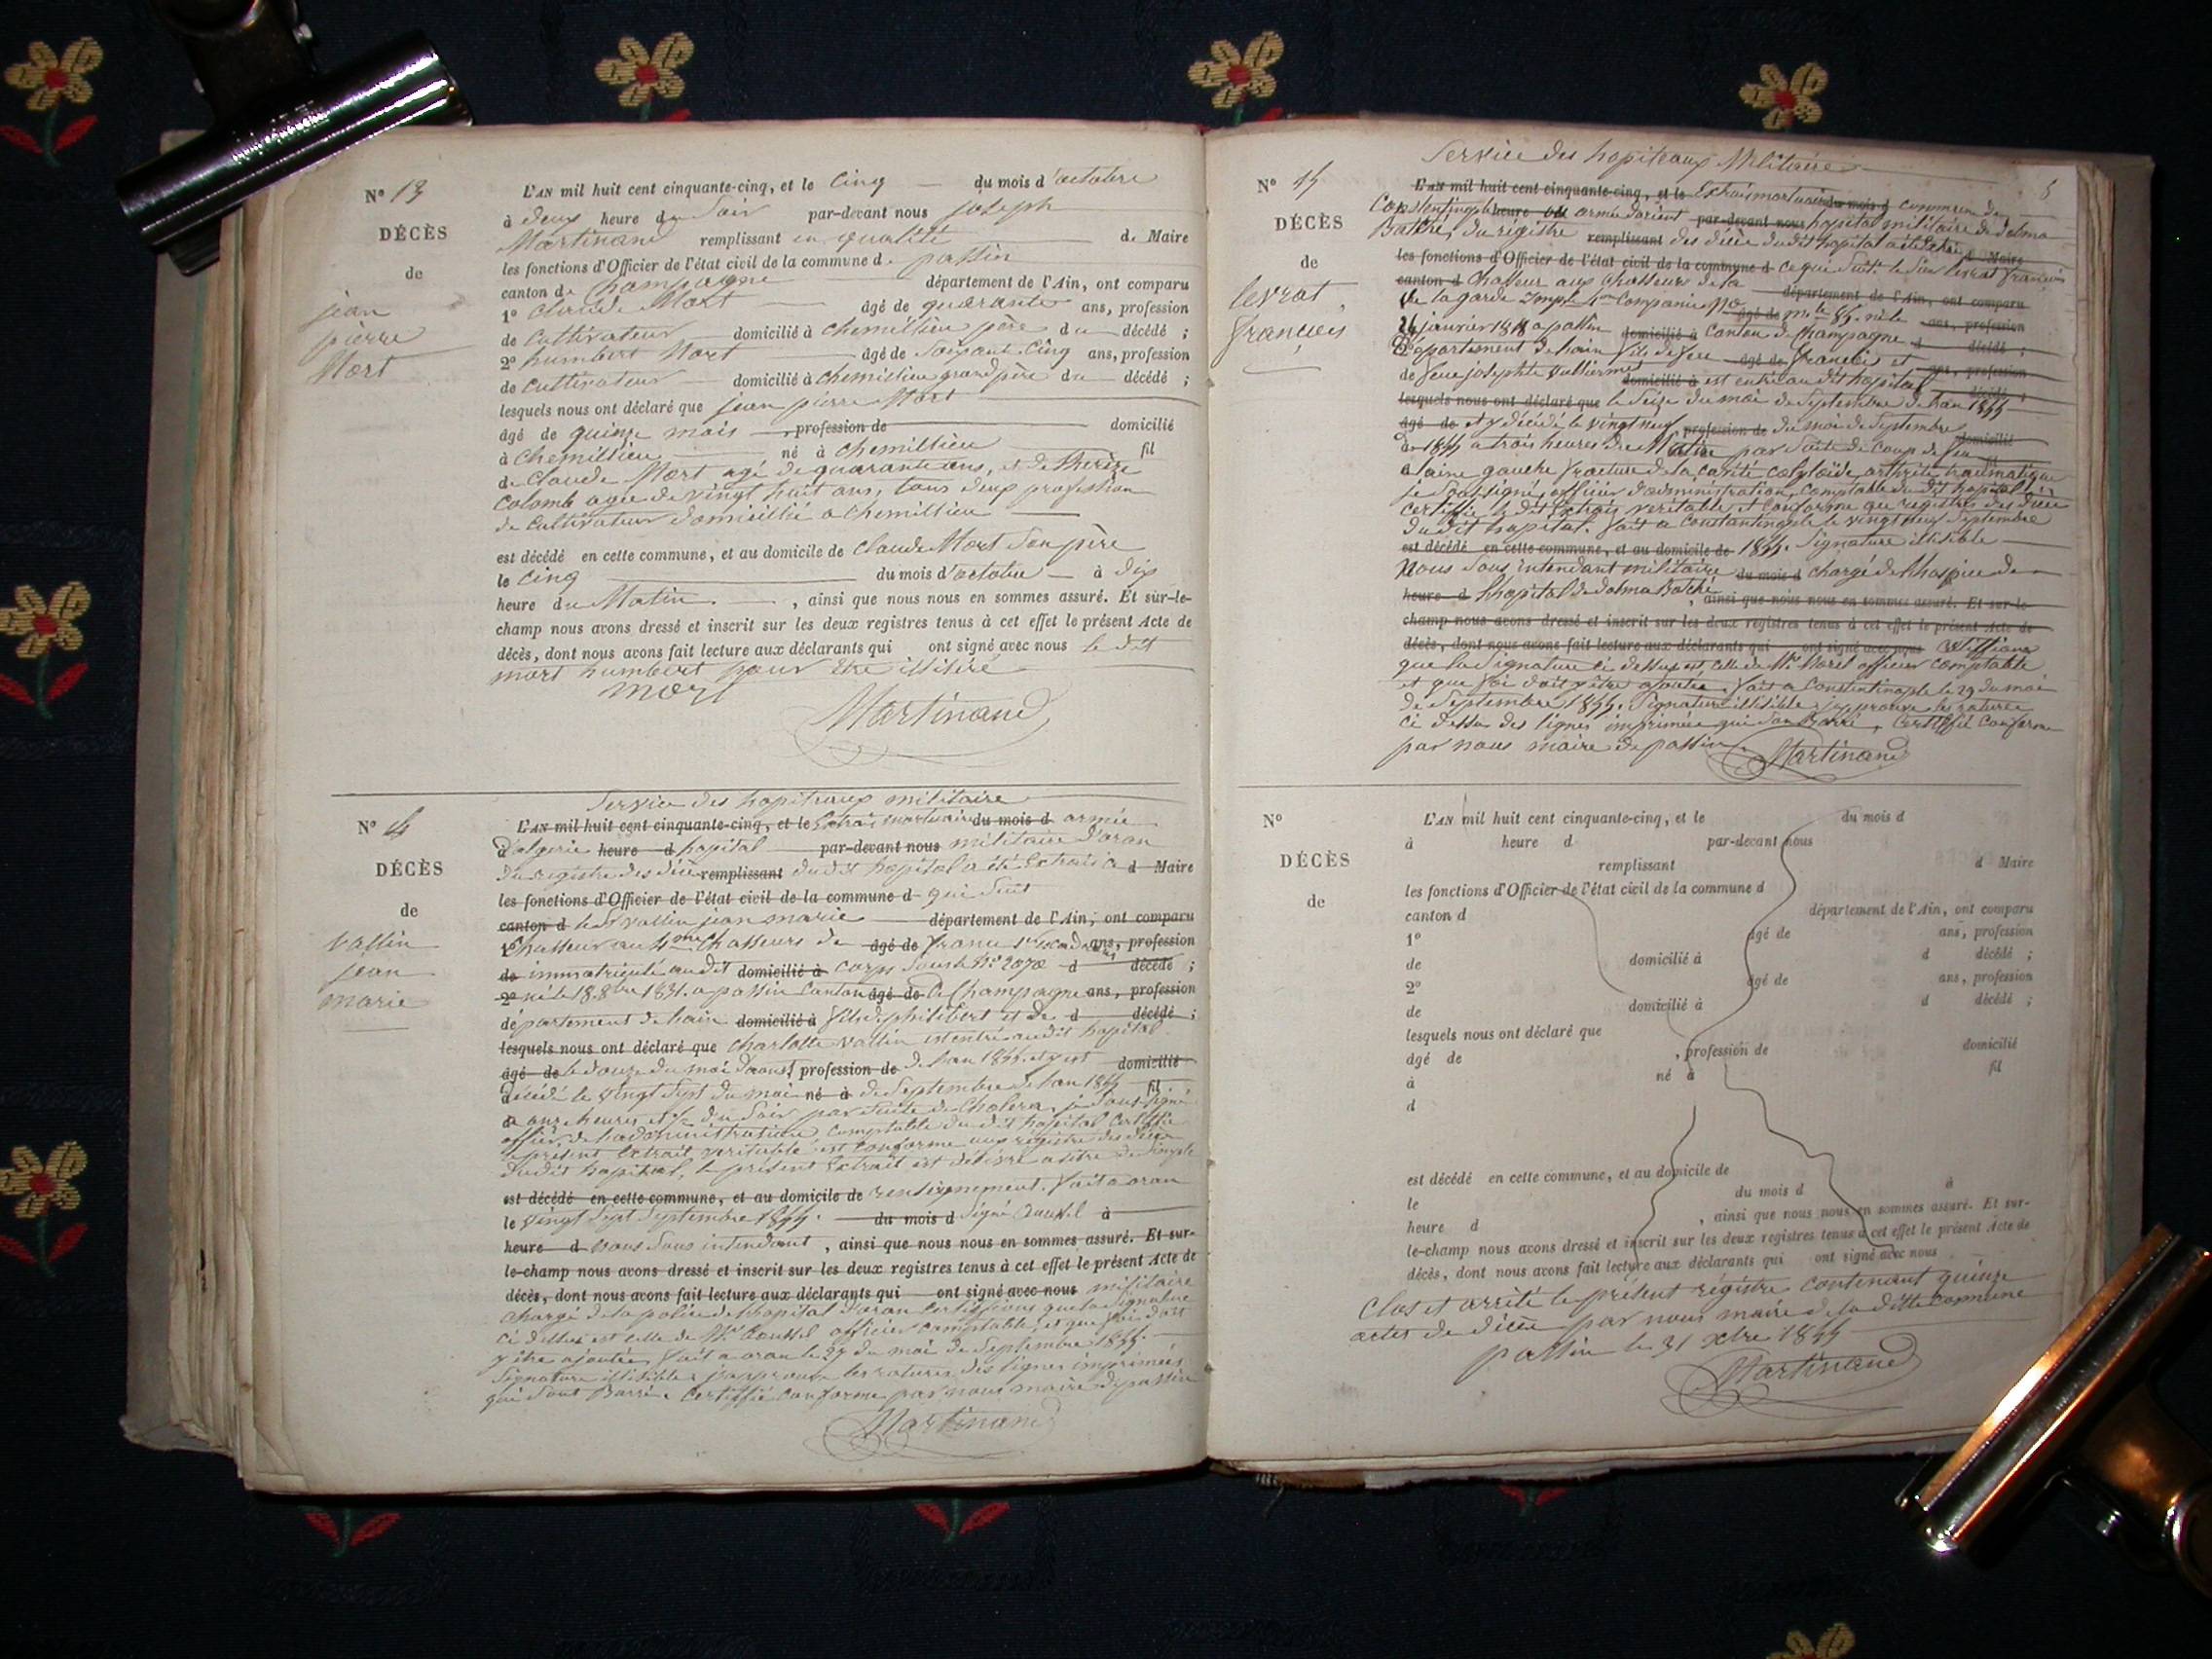 N° 13
DÉCÈS
de
jean
pierre
Mort
L'AN mil huit cent cinquante-cinq, et le cinq du mois d'octobre
à deux heure du Soir par-devant nous joseph
Martinand remplissant en qualité de Maire
les fonctions d'Officier de l'état civil de la commune d. passin
canton de champagne département de l'Ain, ont comparu
1° claude Mort âgé de quarante ans, profession
de cultivateur domicilié à chemillieu père du décédé ;
2° humbert Mort âgé de soixante cinq ans, profession
de cultivateur domicilié à chemillieu grand père du décédé ;
lesquels nous ont déclaré que jean pierre Mort
âgé de quinze mois , profession de domicilié
à chemillieu né à chemillieu fil
de claude Mort agé de quarante ans, et de therèze
colomb agée de vingt huit ans, tous deux profession
de cultivateur domicillié a chemillieu
est décédé en cette commune, et au domicile de claude Mort son père
le cinq du mois d'octobre à dix
heure du Matin , ainsi que nous nous en sommes assuré. Et sur-le-
champ nous avons dressé et inscrit sur les deux registres tenus à cet effet le présent Acte de
décès, dont nous avons fait lecture aux déclarants qui ont signé avec nous le dit
mort humbert pour être illitéré
mort
Martinand
N° 14
DÉCÈS
de
vallin
jean
marie
Service des hopiteaux militaire
L'AN mil huit cent cinquante-cinq, et le Extrai mortuaire du mois d armée
d'algerie heure d hopital par-devant nous militaire d'oran
du registre des décès remplissant du dit hopital a été Extrai d Maire
les fonctions d'Officier de l'état civil de la commune d qui suit
canton d le sr vallin jean marie département de l'Ain, ont comparu
1° Chasseur au 4me Chasseurs de âgé de france ans, profession
de immatriculé au dit domicilié à corps sous le N° 2070 d décédé ;
2° né le 18 8bre 1831. a passin canton âgé de de Champagne ans, profession
département de lain domicilié à fils de philibert et de d décédé ;
lesquels nous ont déclaré que charlotte vallin est entré au dit hopital
âgé de le douze du moi d'aoust profession de de lan 1855. et y est domicilié
décédé le vingt sept du moi né à de Septembre de lan 1855 fil
a onze heures et ½ du soir par suite de Cholera, je soussigné
officier de l'administration comptable du dit hopital certifie
le présent Extrait veritable et conforme aux régistre des décès
du dit hopital, le présent Extrait est délivré a titre de simple
est décédé en cette commune, et au domicile de renseignement. fait a oran
le vingt Sept Septembre 1855. du mois d Signé à
heure d nous Sous intendant , ainsi que nous nous en sommes assuré. Et sur-
le-champ nous avons dressé et inscrit sur les deux registres tenus à cet effet le présent Acte de
décès, dont nous avons fait lecture aux déclarants qui ont signé avec nous militaire
chargé de la police de lhopital d'oran certiffions que la signature
ci dessus est celle de Mr officier comptable, et que foi doit
y être ajoutée fait a oran le 27 du moi de Septembre 1855.
Signature illisible j'approuve les ratures des lignes imprimées
qui sont Barrée. Certiffié conforme par nous maire de passin
Martinand
N° 15
DÉCÈS
de
levrat
françois
5
Service des hopiteaux Militaire
L'AN mil huit cent cinquante-cinq, et le Extrai mortuaire du mois d commune de
Constentinople heure du armée d'orient par-devant nous hopital militaire de dolma
Batché, du régistre remplissant des décès du dit hopital a été d Maire
les fonctions d'Officier de l'état civil de la commune d ce qui suit. le sieur levrat françois
canton d Chasseur aux Chasseurs de la département de l'Ain, ont comparu
de la garde âgé de né le ans, profession
24 janvier 1818 a passin domicilié à Canton de Champagne d décédé ;
2° département de lain fils de feu âgé de françois et ans, profession
de feue josephte vulliermet domicilié à est entré au dit hopital décédé ;
lesquels nous ont déclaré que le Seize du moi de Septembre de lan 1855
âgé de et y décédé le vingt neuf profession de du moi de Septembre
de 1855 a trois heures du Matin par suite de coup de feu domicilié
a laine gauche fracture de la cavité cotyloïde arthrite traumatique
je soussigné, officier d'administration, comptable du dit hopital
certifie le dit Extrais veritable et conforme au régistres des décès
du dit hopital. fait a Constantinople le vingt neuf Septembre
est décédé en cette commune, et au domicile de 1855. Signature illisible
Nous Sous intendant militaire du mois d chargé de lhospice de
heure d lhopital de dolma Batché , ainsi que nous nous en sommes assuré. Et sur-le-
champ nous avons dressé et inscrit sur les deux registres tenus à cet effet le présent Acte de
décès, dont nous avons fait lecture aux déclarants qui ont signé avec nous certiffions
que la Signature ci dessus est celle de Mr Morel officier comptable
et que foi doit y être ajoutée. fait a Constentinople le 29 du moi
de Septembre 1855. Signature illisible. j'approuve les ratures
ci dessus des lignes imprimée qui son Barré. Certiffié conforme
par nous maire de passin. Martinand
N°
DÉCÈS
de
L'AN mil huit cent cinquante-cinq, et le du mois d
à heure d par-devant nous
remplissant d Maire
les fonctions d'Officier de l'état civil de la commune d
canton d département de l'Ain, ont comparu
1° âgé de ans, profession
de domicilié à d décédé ;
2° âgé de ans, profession
de domicilié à d décédé ;
lesquels nous ont déclaré que
âgé de , profession de domicilié
à né à fil
d
est décédé en cette commune, et au domicile de
le du mois d à
heure d , ainsi que nous nous en sommes assuré. Et sur-
le-champ nous avons dressé et inscrit sur les deux registres tenus à cet effet le présent Acte de
décès, dont nous avons fait lecture aux déclarants qui ont signé avec nous
Clos et arrêté le présent régistre contenant quinze
actes de décès par nous maire de la ditte commune
passin le 31 xbre 1855
Martinand